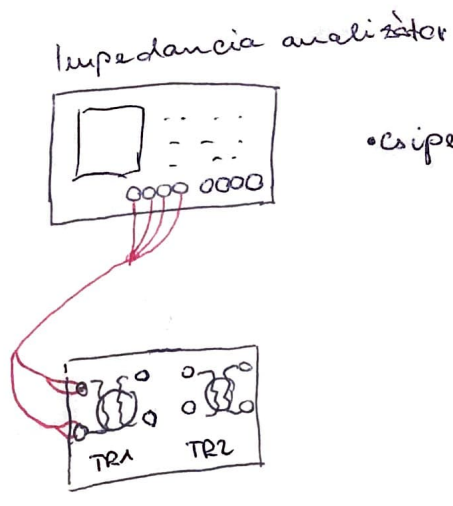 Impedancia analizátor
•csipe
TR1 TR2